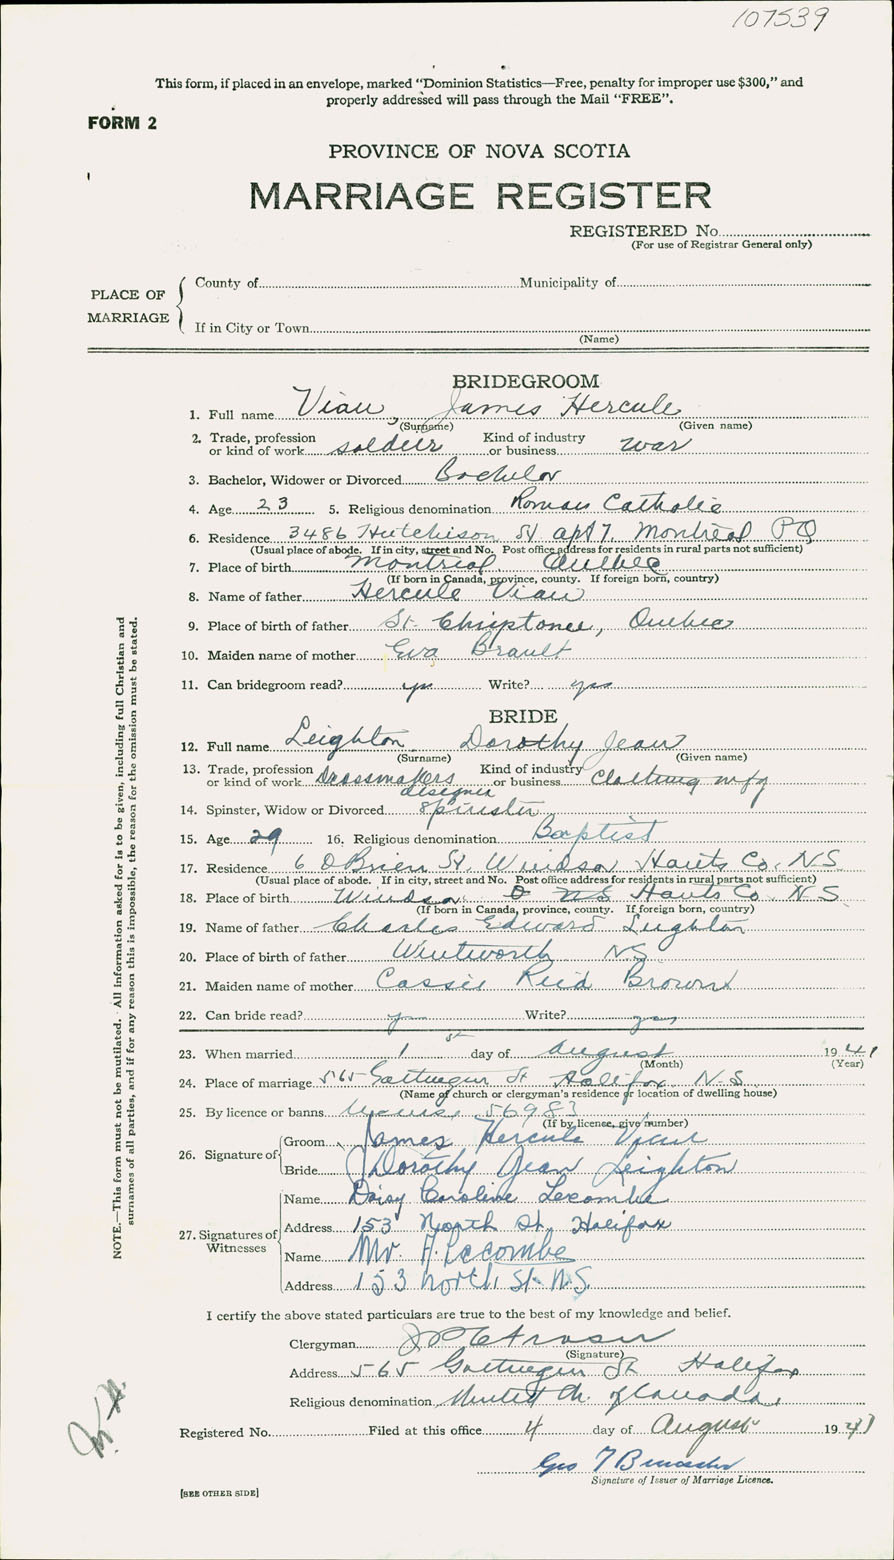 107539
This form, if placed in an envelope, marked "Dominion Statistics—Free, penalty for improper use $300," and
properly addressed will pass through the Mail "FREE".
FORM 2
PROVINCE OF NOVA SCOTIA
MARRIAGE REGISTER
REGISTERED No.
(For use of Registrar General only)
PLACE OF MARRIAGE
County of Municipality of
If in City or Town
(Name)
BRIDEGROOM
1. Full name Viau, James Hercule
(Surname) (Given name)
2. Trade, profession or kind of work soldier Kind of industry or business war
3. Bachelor, Widower or Divorced Bachelor
4. Age 23 5. Religious denomination Roman Catholic
6. Residence 3486 Hutchison St apt 7. Montreal PQ
(Usual place of abode. If in city, street and No. Post office address for residents in rural parts not sufficient)
7. Place of birth Montreal Quebec
(If born in Canada, province, county. If foreign born, country)
8. Name of father Hercule Viau
9. Place of birth of father St. Quebec
10. Maiden name of mother Eva Brault
11. Can bridegroom read? yes Write? yes
BRIDE
12. Full name Leighton Dorothy Jean
(Surname) (Given name)
13. Trade, profession or kind of work Dressmakers designer Kind of industry or business Clothing mfg
14. Spinster, Widow or Divorced Spinster
15. Age 29 16. Religious denomination Baptist
17. Residence 6 O'Brien St. Windsor Hants Co. N.S
(Usual place of abode. If in city, street and No. Post office address for residents in rural parts not sufficient)
18. Place of birth Windsor N S Hants Co. N.S
(If born in Canada, province, county. If foreign born, country)
19. Name of father Charles Edward Leighton
20. Place of birth of father Wentworth N.S.
21. Maiden name of mother Cassie Reid Brown
22. Can bride read? yes Write? yes
23. When married 1st day of August 1941
(Month) (Year)
24. Place of marriage 565 Gottingen St Halifax N.S
(Name of church or clergyman's residence or location of dwelling house)
25. By licence or banns License 56983
(If by license, give number)
26. Signature of
Groom James Hercule Viau
Bride Dorothy Jean Leighton
27. Signatures of Witnesses
Name Daisy Caroline Lecombe
Address 153 North St. Halifax
Name Mr. A. Lecombe
Address 153 North St. N.S.
I certify the above stated particulars are true to the best of my knowledge and belief.
Clergyman Fraser
(Signature)
Address 565 Gottingen St Halifax
Religious denomination United Ch. of Canada.
Registered No. Filed at this office 4 day of August 1941
Geo
Signature of Issuer of Marriage Licence.
[SEE OTHER SIDE]
NOTE.—This form must not be mutilated. All information asked for is to be given, including full Christian and
surnames of all parties, and if for any reason this is impossible, the reason for the omission must be stated.